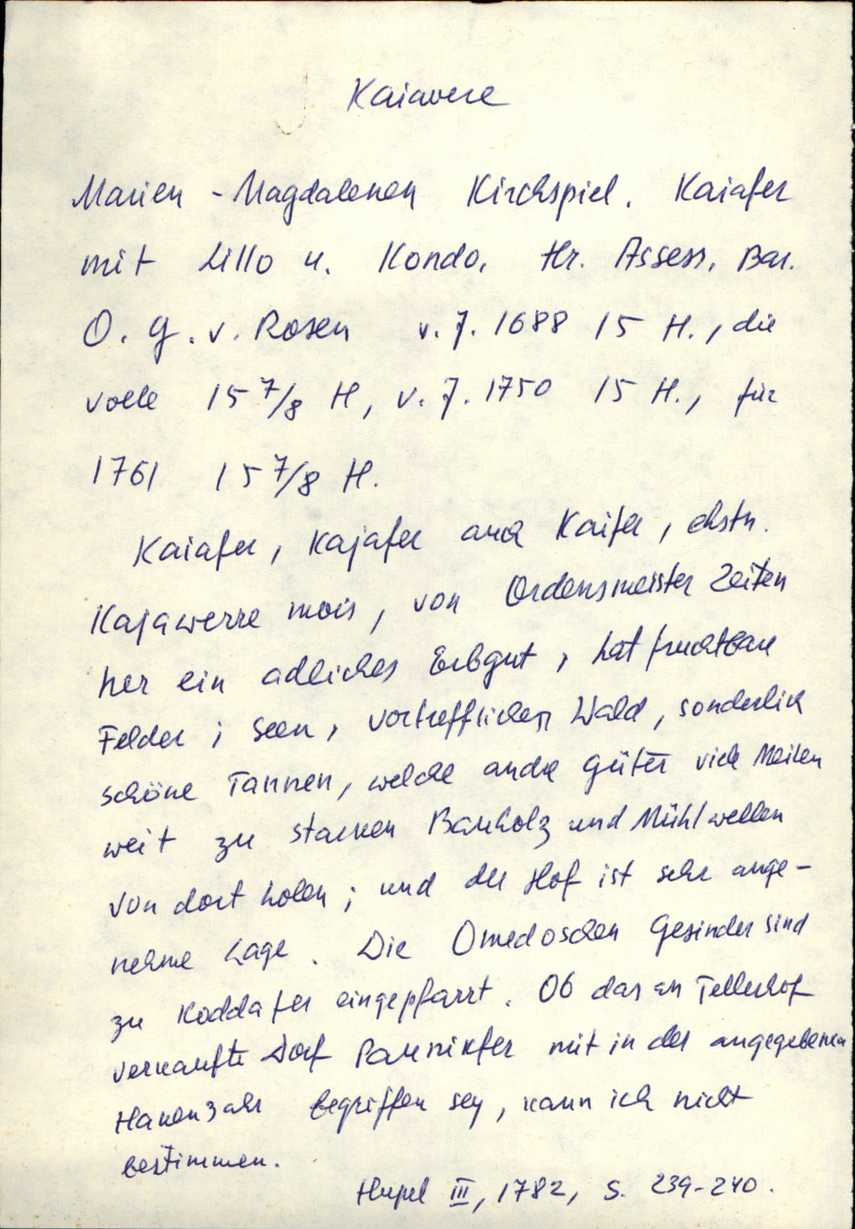 Kaiavere
Marien-Magdalenen Kirchspiel. Kaiafer
mit Lillo u. Kondo. Hr. Assess. Bar.
O. G. v. Rosen v. J. 1688 15 H., die
volle 15 7/8 H, v. J. 1750 15 H., für
1761 15 7/8 H.
Kaiafer, Kajafer auch Kaifer, ehstn.
Kajawerre mois, von Ordensmeister Zeiten
her ein adliches Erbgut, hat fruchtbare
Felder; Seen, vortrefflichen Wald, sonderlich
schöne Tannen, welche andre Güter viele Meilen
weit zu starken Bauholz und Mühlwellen
von dort holen; und der Hof ist sehr ange-
nehme Lage. Die Omedoschen Gesinder sind
zu Koddafer eingepfarrt. Ob das an Tellerhof
verkaufte Dorf Pauninfer mit in der angegebenen
Hakenzahl begriffen sey, kann ich nicht
bestimmen.
Hupel III, 1782, S. 239-240.